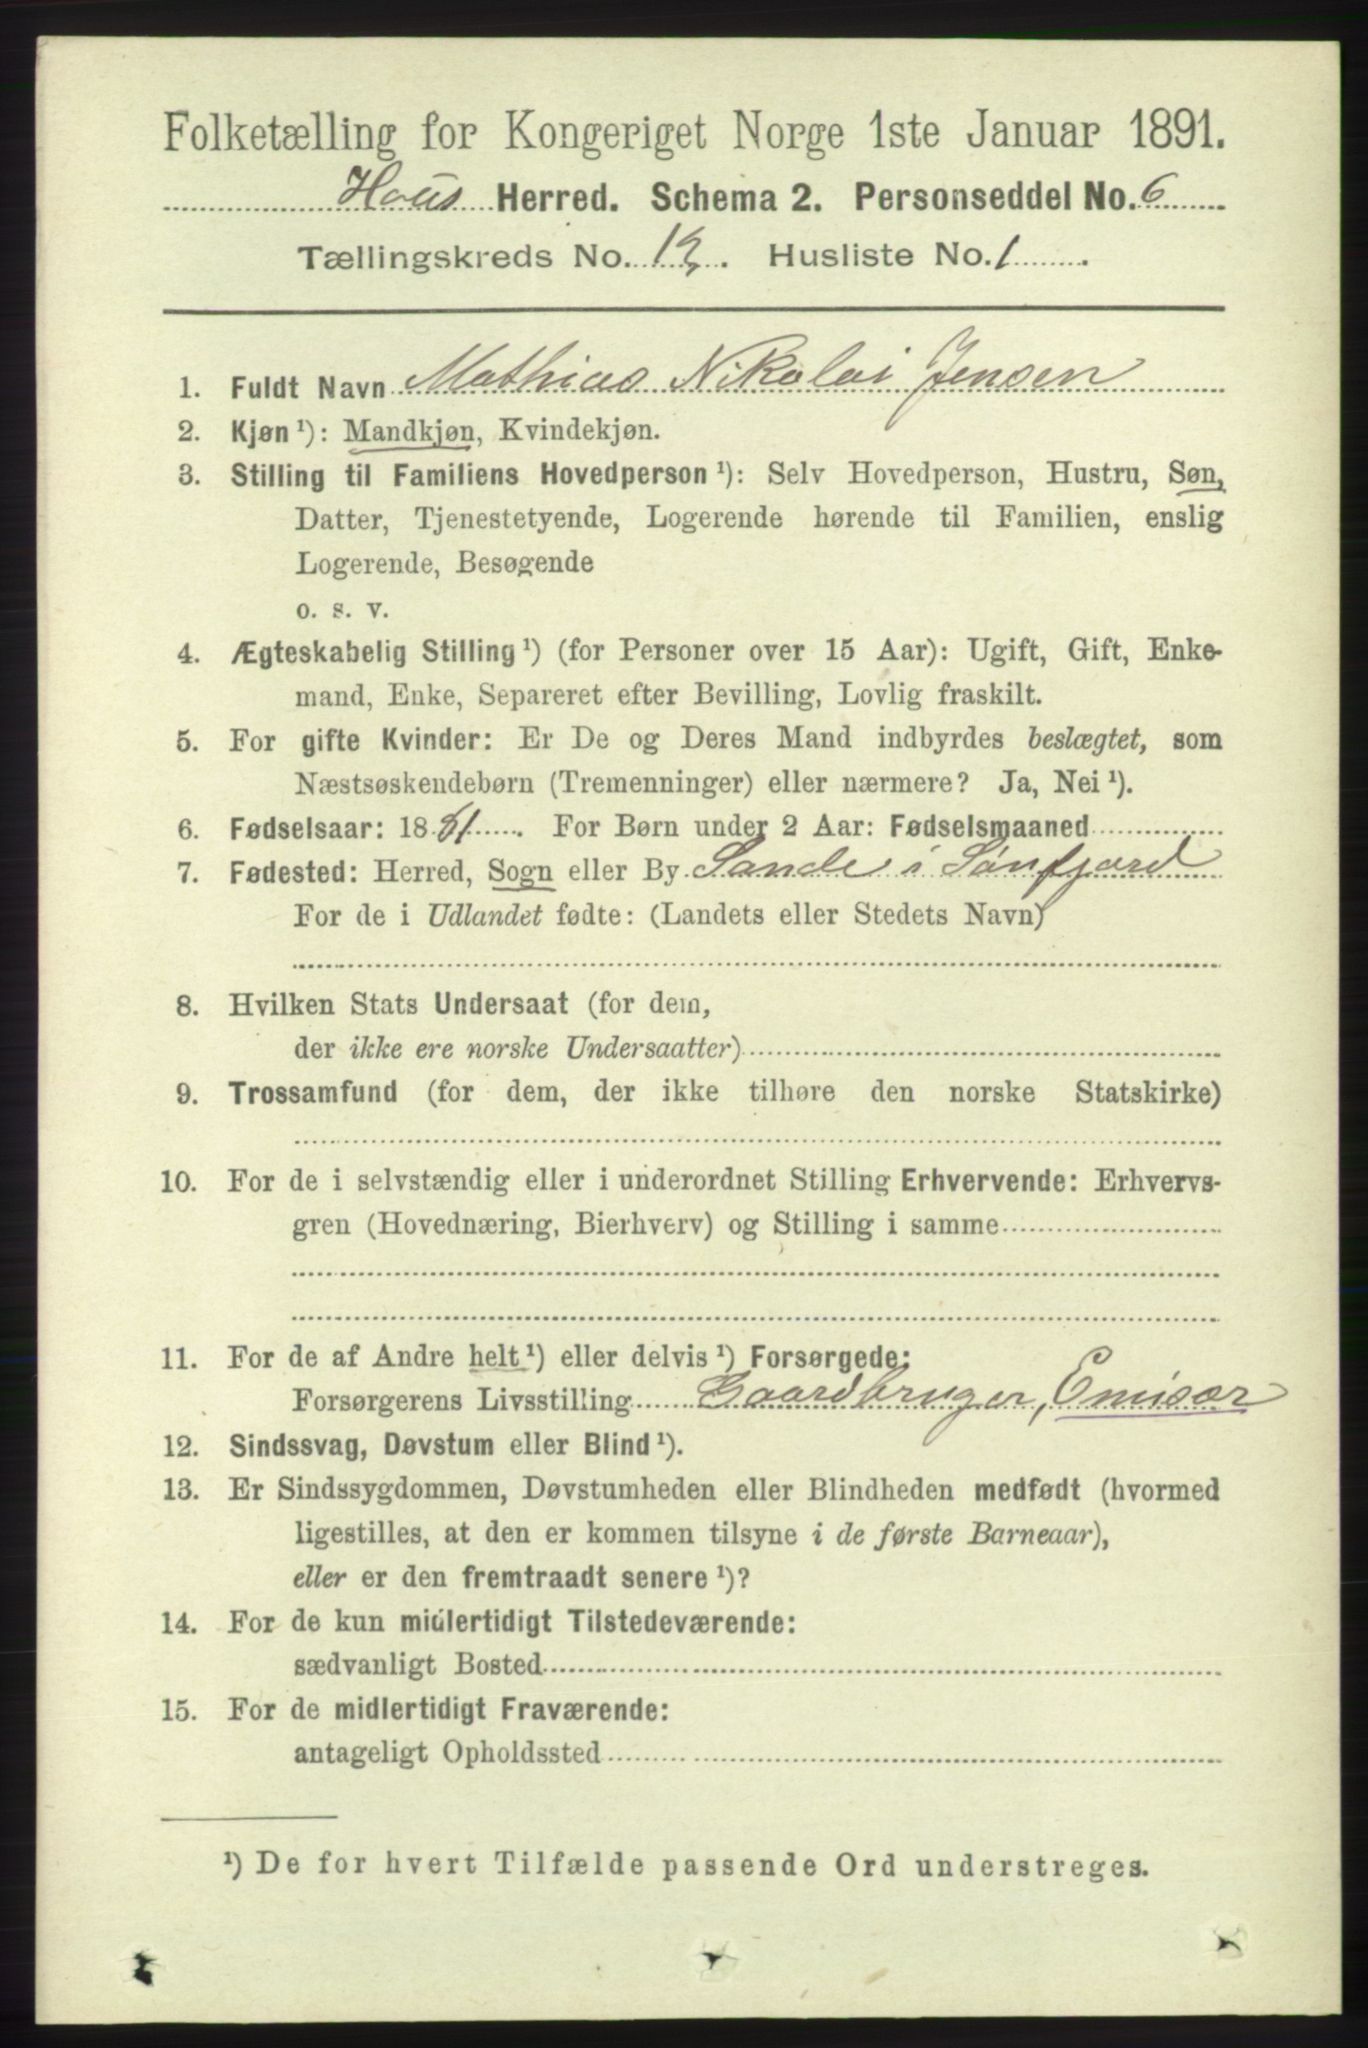 Folketælling for Kongeriget Norge 1ste Januar 1891.
Haus Herred. Schema 2. Personseddel No. 6
Tællingskreds No. 12. Husliste No. 1.
1. Fuldt Navn Mathias Nikolai Jensen
2. Kjøn ¹): Mandkjøn, Kvindekjøn.
3. Stilling til Familiens Hovedperson ¹): Selv Hovedperson, Hustru, Søn,
Datter, Tjenestetyende, Logerende hørende til Familien, enslig
Logerende, Besøgende
o. s. v.
4. Ægteskabelig Stilling ¹) (for Personer over 15 Aar): Ugift, Gift, Enke-
mand, Enke, Separeret efter Bevilling, Lovlig fraskilt.
5. For gifte Kvinder: Er De og Deres Mand indbyrdes beslægtet, som
Næstsøskendebørn (Tremenninger) eller nærmere? Ja, Nei ¹).
6. Fødselsaar: 1881. For Børn under 2 Aar: Fødselsmaaned
7. Fødested: Herred, Sogn eller By Sande i Sønfjord
For de i Udlandet fødte: (Landets eller Stedets Navn)
8. Hvilken Stats Undersaat (for dem,
der ikke ere norske Undersaatter)
9. Trossamfund (for dem, der ikke tilhøre den norske Statskirke)
10. For de i selvstændig eller i underordnet Stilling Erhvervende: Erhvervs-
gren (Hovednæring, Bierhverv) og Stilling i samme
11. For de af Andre helt ¹) eller delvis ¹) Forsørgede:
Forsørgerens Livsstilling Gaardbruger, Emisær
12. Sindssvag, Døvstum eller Blind ¹).
13. Er Sindssygdommen, Døvstumheden eller Blindheden medfødt (hvormed
ligestilles, at den er kommen tilsyne i de første Barneaar),
eller er den fremtraadt senere ¹)?
14. For de kun midlertidigt Tilstedeværende:
sædvanligt Bosted
15. For de midlertidigt Fraværende:
antageligt Opholdssted
¹) De for hvert Tilfælde passende Ord understreges.